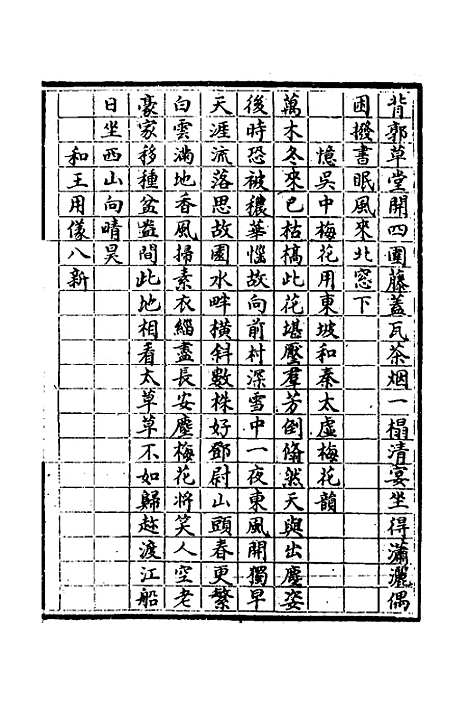 背郭草堂開四圍藤蓋瓦茶烟一榻清宴坐得瀟灑偶
困撥書眠風來北窓下
憶吳中梅花用東坡和秦太虛梅花韻
萬木冬來已枯槁此花堪壓羣芳倒翛然天與出塵姿
後時恐被穠華惱故向前村深雪中一夜東風開獨早
天涯流落思故園水畔橫斜數株好鄧尉山頭春更繁
白雲滿地香風掃素衣緇盡長安塵梅花將笑人空老
豪家移種盆盎間此地相看太草草不如歸趁渡江船
日坐西山向晴昊
和王用儀八新